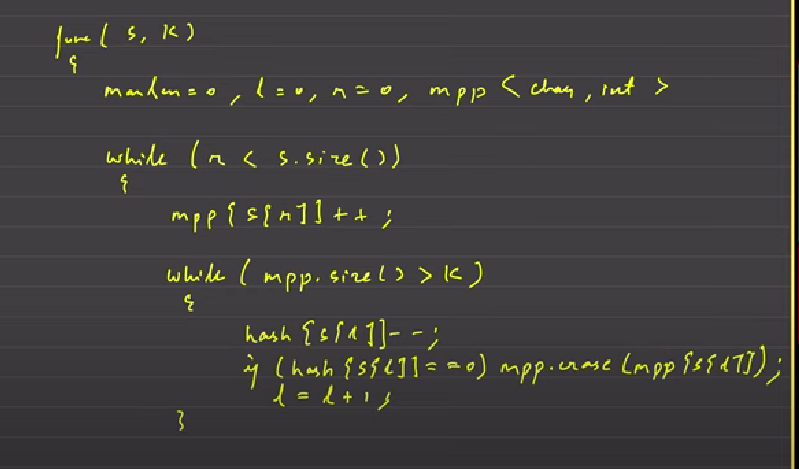 func( s, K)
{
maxlen = 0, l = 0, r = 0, mpp < char, int >
while (r < s.size())
{
mpp[s[r]]++;
while (mpp.size() > K)
{
hash[s[l]]--;
if (hash[s[l]] == 0) mpp.erase(mpp[s[l]]);
l = l + 1;
}